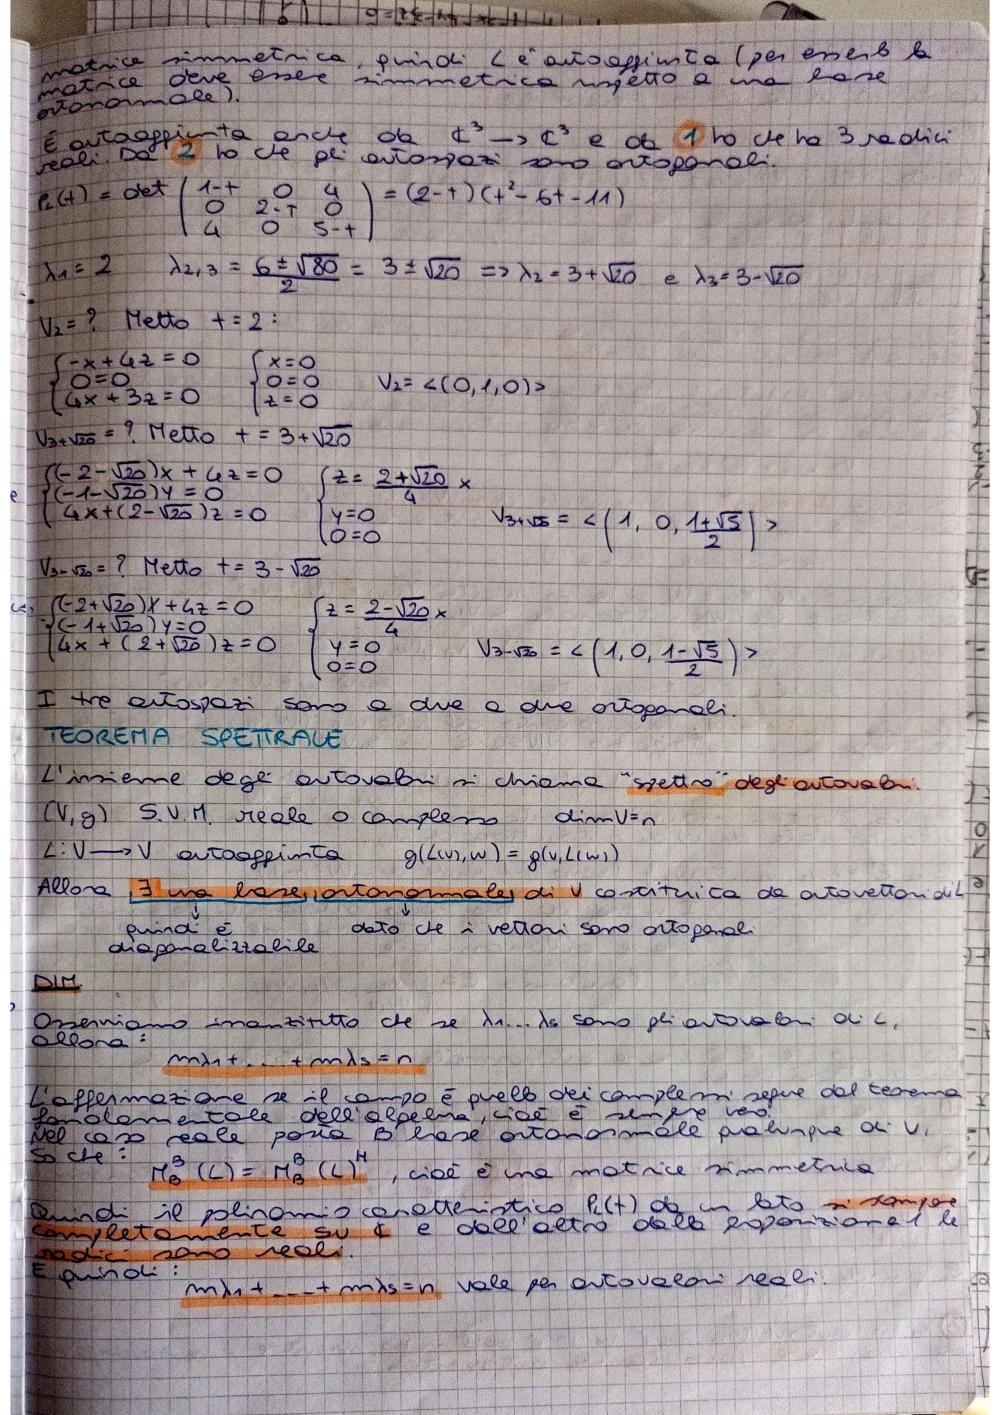 matrice simmetrica, quindi L è autoaggiunta (per esserlo la
matrice deve essere simmetrica rispetto a una base
ortonormale).
È autoaggiunta anche da ℂ³ → ℂ³ e da 1 ho che ha 3 radici
reali. Da 2 ho che gli autospazi sono ortogonali.
P_L(t) = det ( 1-t 0 4
0 2-t 0
4 0 5-t ) = (2-t)(t²-6t-11)
λ1 = 2 λ2,3 = (6 ± √80)/2 = 3 ± √20 => λ2 = 3+√20 e λ3 = 3-√20
V2 = ? Metto t = 2:
{ -x+4z = 0 { x=0
0=0 0=0 V2 = <(0,1,0)>
4x+3z=0 z=0
V3+√20 = ? Metto t = 3+√20
{ (-2-√20)x + 4z = 0 { z = (2+√20)/4 x
(-1-√20)y = 0
4x+(2-√20)z = 0 y=0 V3+√5 = <(1, 0, (1+√5)/2)>
0=0
V3-√20 = ? Metto t = 3-√20
{ (-2+√20)x+4z=0 { z = (2-√20)/4 x
(-1+√20)y=0
4x+(2+√20)z=0 y=0 V3-√20 = <(1,0,(1-√5)/2)>
0=0
I tre autospazi sono a due a due ortogonali.
TEOREMA SPETTRALE
L'insieme degli autovalori si chiama "spettro" degli autovalori.
(V,g) S.V.M. reale o complesso dimV=n
L: V → V autoaggiunta g(L(v),w) = g(v,L(w))
Allora ∃ una base ortonormale di V costituica da autovettori di L
quindi è dato che i vettori sono ortogonali
diagonalizzabile
DIM.
Osserviamo innanzitutto che se λ1...λs sono gli autovalori di L,
allora:
mλ1+....+mλs=n
L'affermazione se il campo è quello dei complessi segue dal teorema
fondamentale dell'algebra, cioè è sempre vero.
Nel caso reale posta B base ortonormale qualunque di V,
so che:
M_B^B (L) = M_B^B (L)^H, cioè è una matrice simmetrica
Quindi il polinomio caratteristico P_L(t) da un lato si rompe
completamente su ℂ e dall'altro dalla proposizione 1 le
radici sono reali.
E quindi:
mλ1+....+mλs=n vale per autovalori reali.